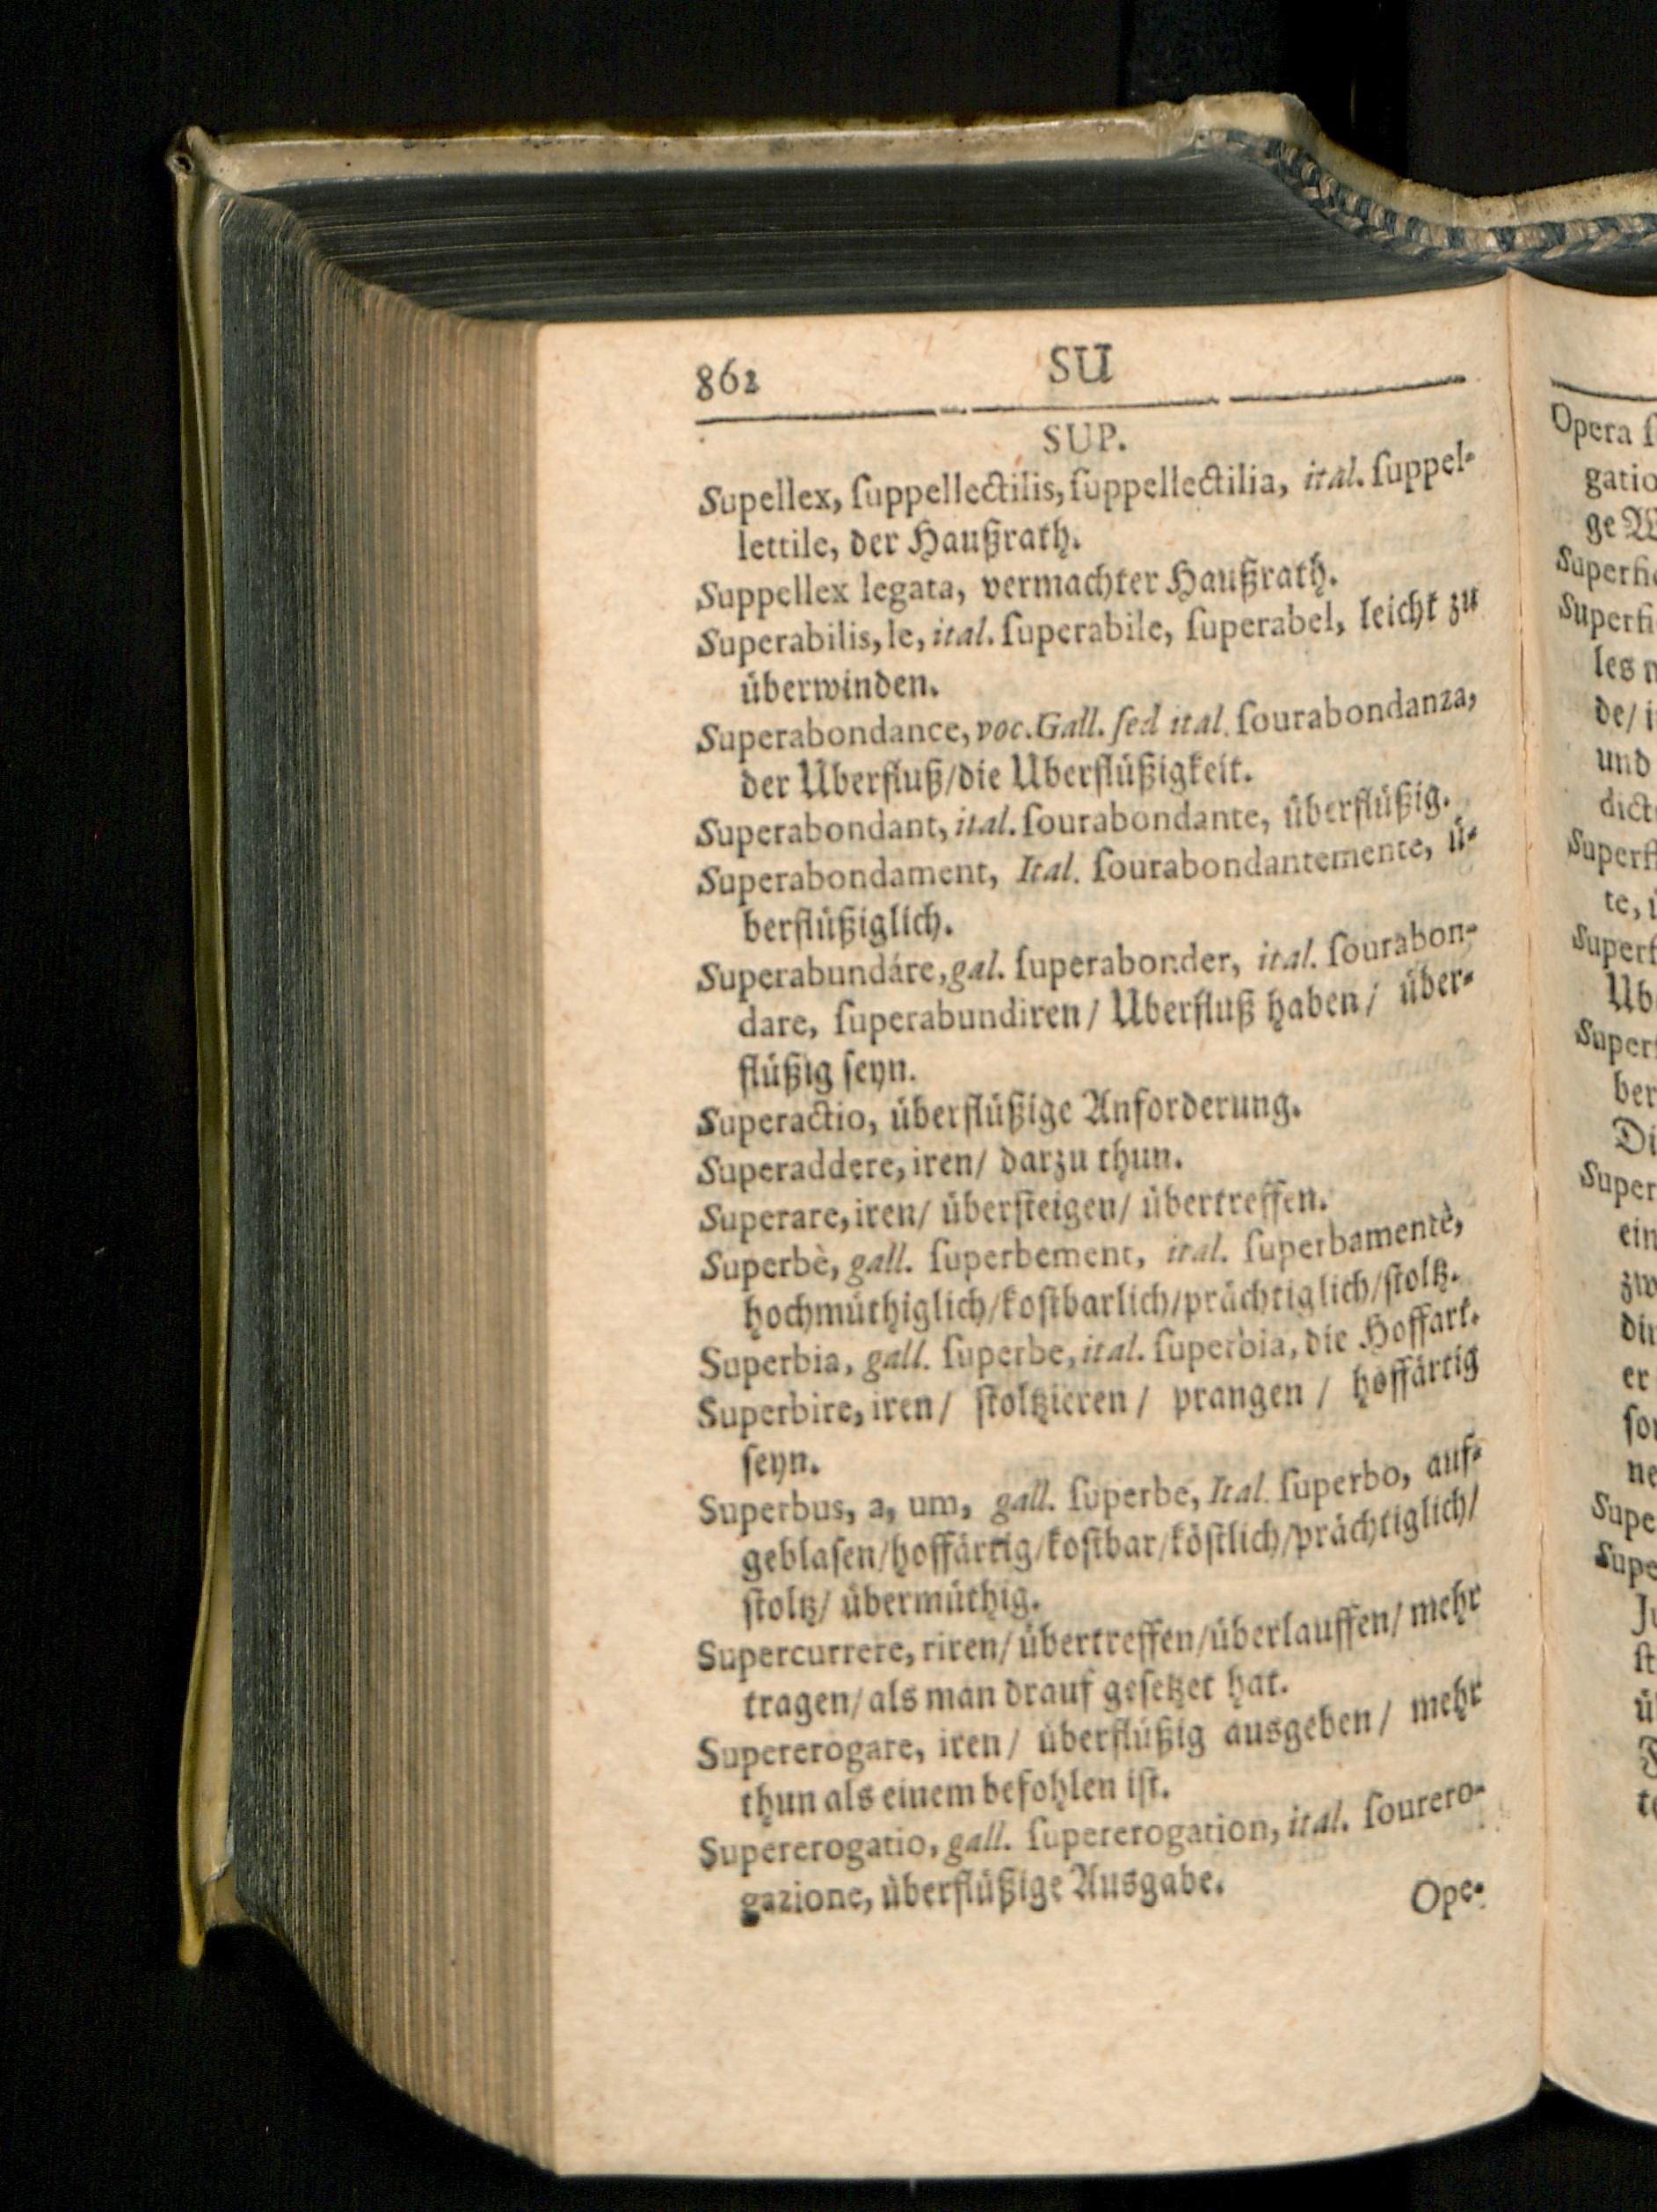 862 SU
SUP.
Supellex, ſuppellectilis, ſuppellectilia, ital. ſuppel-
lettile, der Haußrath.
Suppellex legata, vermachter Haußrath.
Superabilis, le, ital. ſuperabile, ſuperabel, leicht zu
überwinden.
Superabondance, voc. Gall. ſed ital. ſourabondanza,
der Uberfluß/die Uberflüßigkeit.
Superabondant, ital. ſourabondante, überflüßig.
Superabondament, Ital. ſourabondantemente, ü-
berflüßiglich.
Superabundáre, gal. ſuperabonder, ital. ſourabon-
dare, ſuperabundiren/ Uberfluß haben/ über-
flüßig ſeyn.
Superactio, überflüßige Anforderung.
Superaddere, iren/ darzu thun.
Superare, iren/ überſteigen/ übertreffen.
Superbè, gall. ſuperbement, ital. ſuperbamentè,
hochmüthiglich/koſtbarlich/prächtiglich/ſtoltz.
Superbia, gall. ſuperbe, ital. ſuperbia, die Hoffart.
Superbire, iren/ ſtoltzieren/ prangen / hoffärtig
ſeyn.
Superbus, a, um, gall. ſuperbe, Ital. ſuperbo, auf-
geblaſen/hoffärtig/koſtbar/köſtlich/prächtiglich/
ſtoltz/ übermüthig.
Supercurrere, riren/ übertreffen/überlauffen/ mehr
tragen/ als man drauf geſetzet hat.
Supererogare, iren/ überflüßig ausgeben/ mehr
thun als einem befohlen iſt.
Supererogatio, gall. ſupererogation, ital. ſourero-
gazione, überflüßige Ausgabe.
Ope-
Opera
gatio
ge
les
de/
und
te,
ber
ein
er